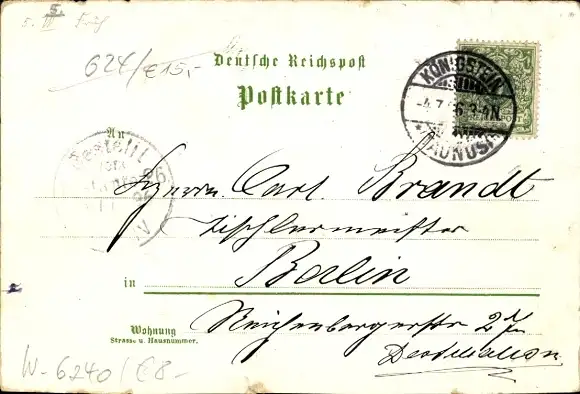 624/€15,-
Deutsche Reichspost
Postkarte
KÖNIGSTEIN
TAUNUS
An
Bestellt
vom
Herrn Carl Brandt
Tischlermeister
in Berlin
Wohnung
Strasse u. Hausnummer.
Reichenbergerstr 2
Destillation
W-6240/€8-